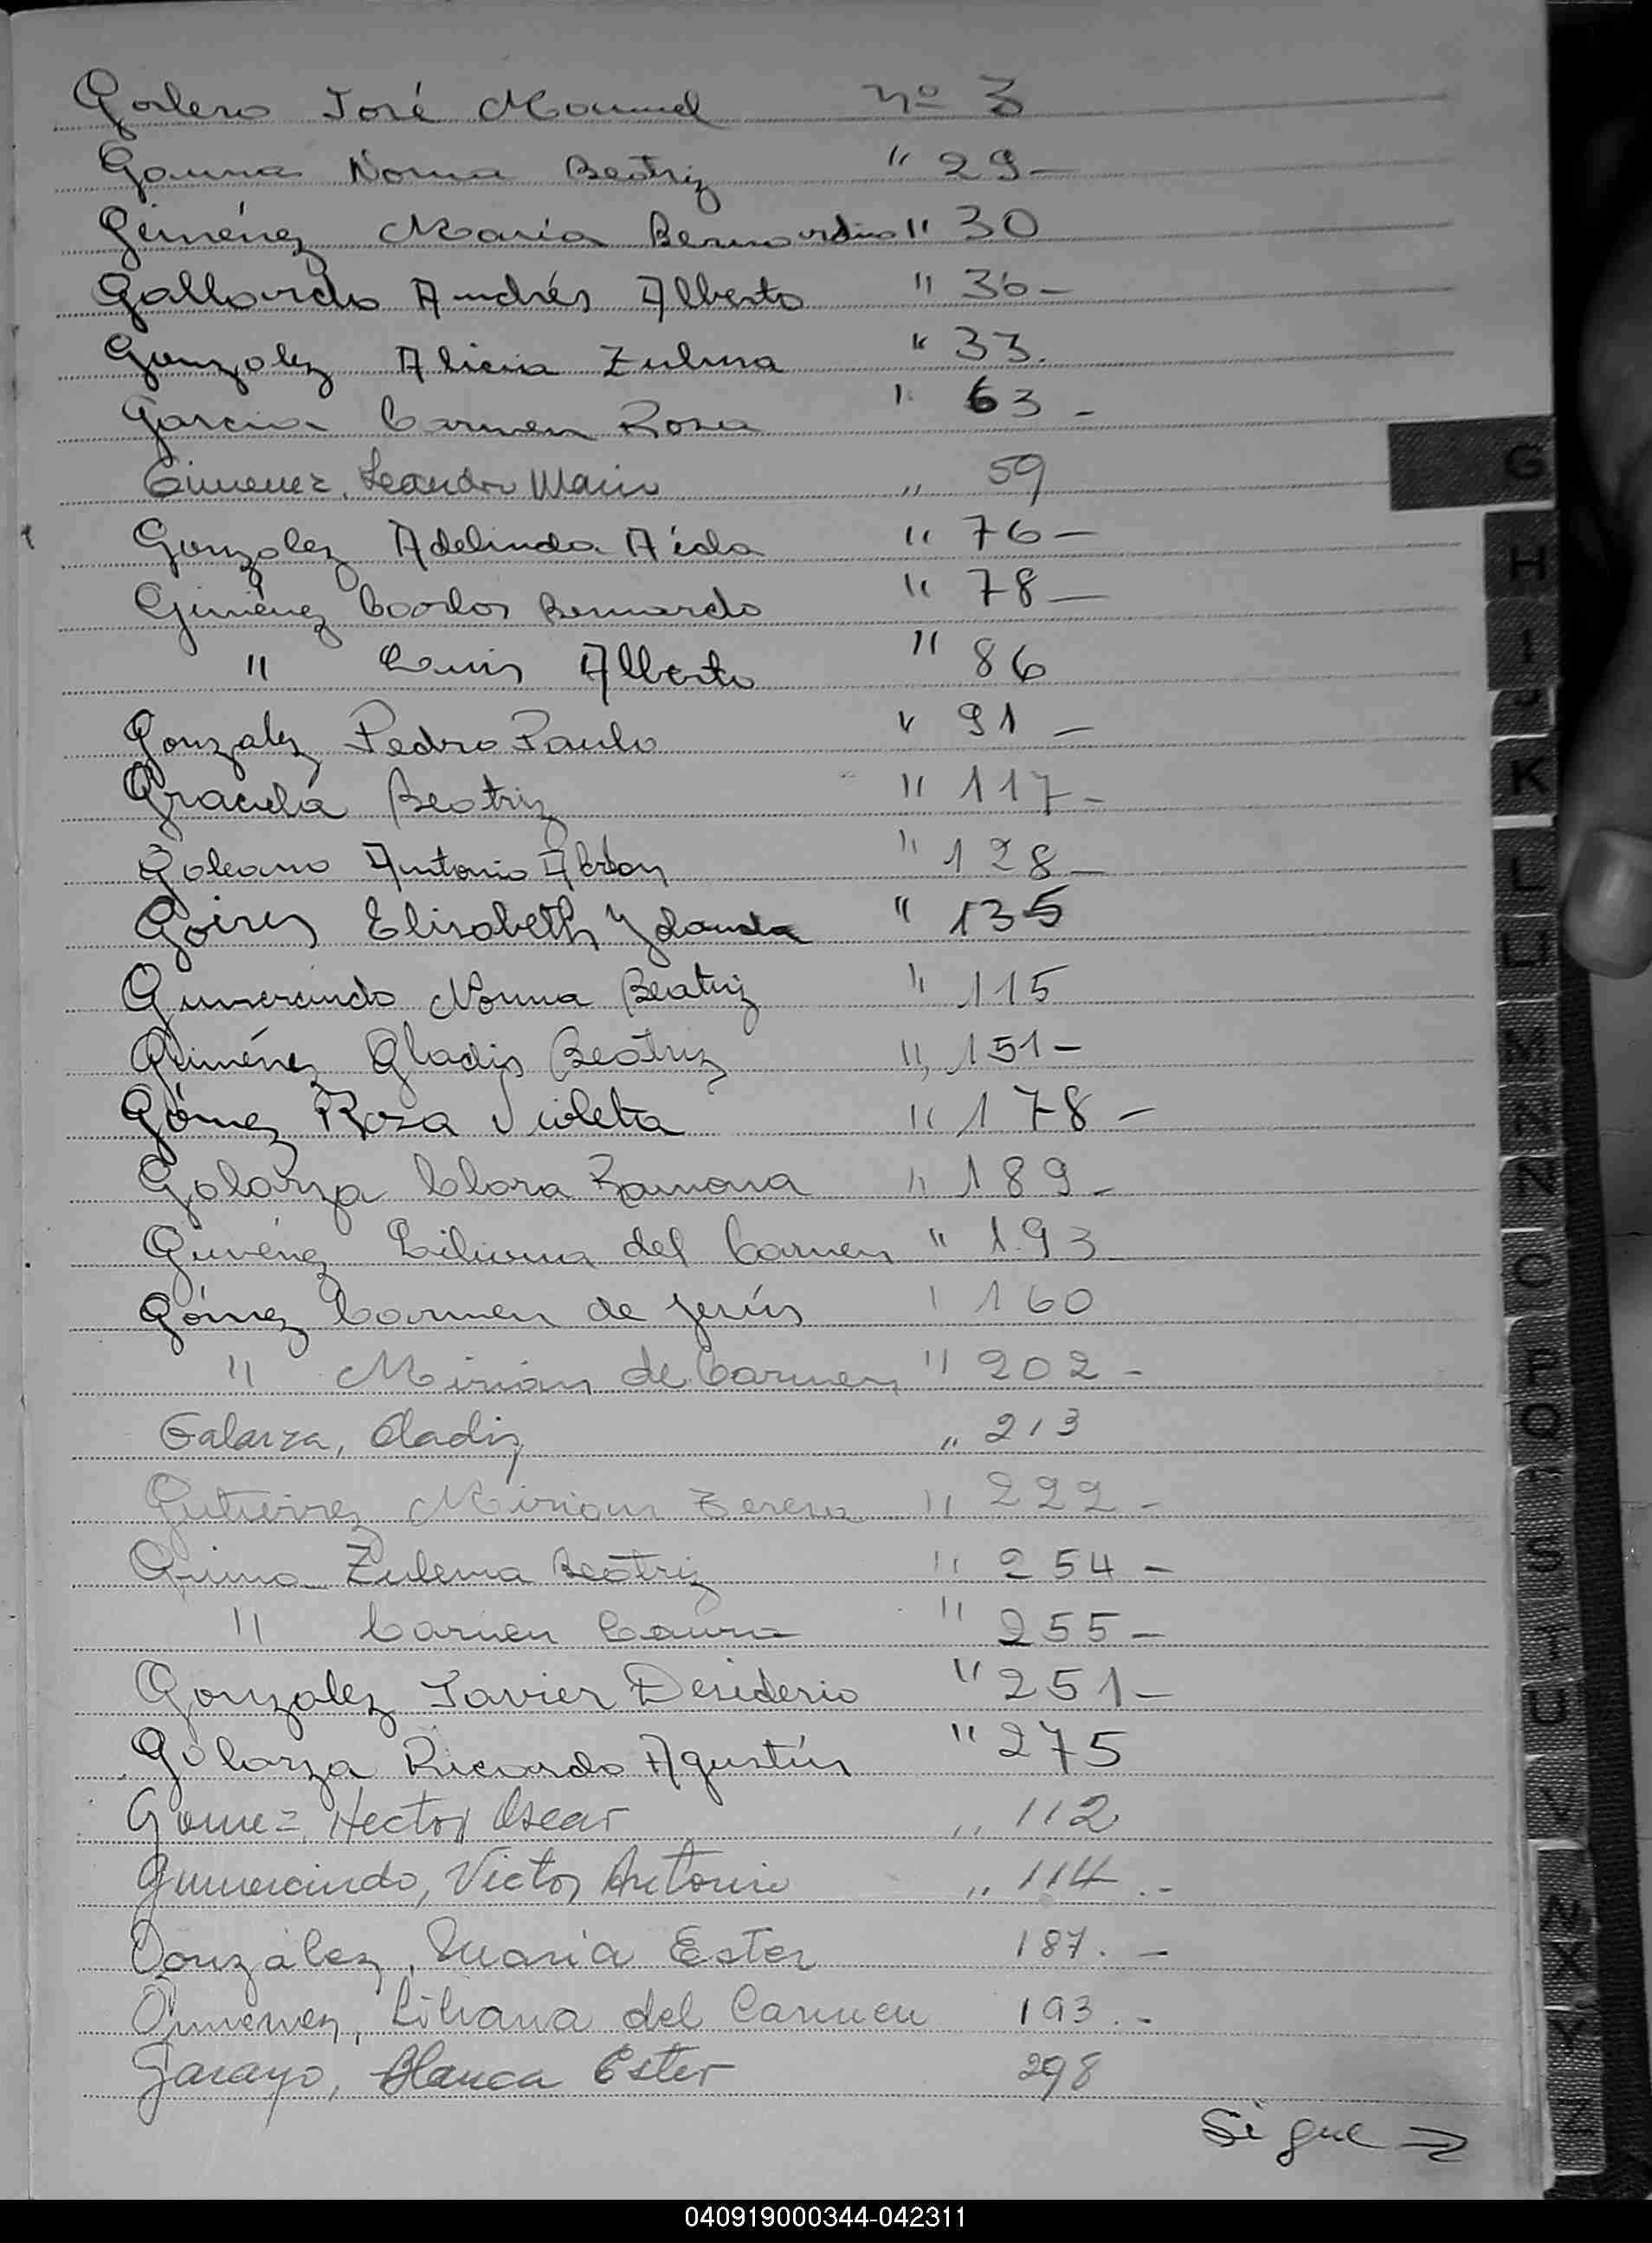 Galera José Manuel nº 3
Gauna Norma Beatriz " 29 -
Giménez María Bernardina " 30
Gallardo Andrés Alberto " 36 -
Gonzalez Alicia Zulma " 33.
Garcia Carmen Rosa " 63 -
Gimenez, Leandro Mario " 59
Gonzalez Adelinda Aída " 76 -
Giménez Carlos Bernardo " 78 -
" Luis Alberto " 86
Gonzalez Pedro Paulo " 91 -
Graciela Beatriz " 117 -
Galeano Antonio " 128 -
Goires Elisabeth Yolanda " 135
Gumercindo Norma Beatriz " 115
Giménez Gladis Beatriz " 151 -
Gómez Rosa Violeta " 178 -
Galarza Clara Ramona " 189 -
Giménez Liliana del Carmen " 193
Gómez Carmen de Jesús " 160
" Mirian del Carmen " 202 -
Galarza, Gladis " 213
Gutierrez Mirian Teresa " 222 -
Zulema Beatriz " 254 -
" Carmen Laura " 255 -
Gonzalez Javier Desiderio " 251 -
Galarza Ricardo Agustín " 275
Gomez, Hector Oscar " 112
Gumercindo, Victor Antonio " 114 . -
González, María Ester 187. -
Gimenez, Liliana del Carmen 193 . -
Garayo, Blanca Ester 298
Sigue →
G
H
I
J
K
L
LL
M
N
Ñ
O
P
Q
S
T
U
V
X
Y
Z
040919000344-042311